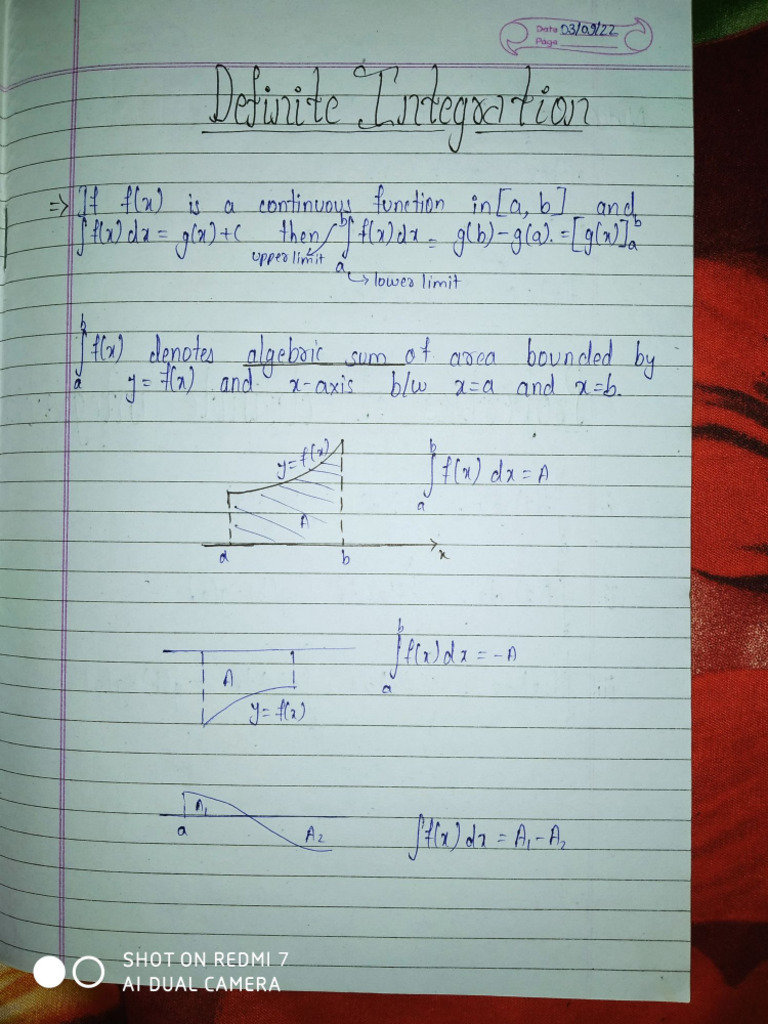 Date 03/09/22
Page
Definite Integration
⇒ If f(x) is a continuous function in [a, b] and
∫f(x) dx = g(x)+c then ∫ₐᵇ f(x) dx = g(b) – g(a). = [g(x)]ₐᵇ
upper limit
lower limit
∫ₐᵇ f(x) denotes algebric sum of area bounded by
y = f(x) and x-axis b/w x=a and x=b.
y=f(x)
∫ₐᵇ f(x) dx = A
A
a b x
∫ₐᵇ f(x) dx = -A
A
y = f(x)
A₁
a
A₂
∫f(x) dx = A₁ - A₂
SHOT ON REDMI 7
AI DUAL CAMERA